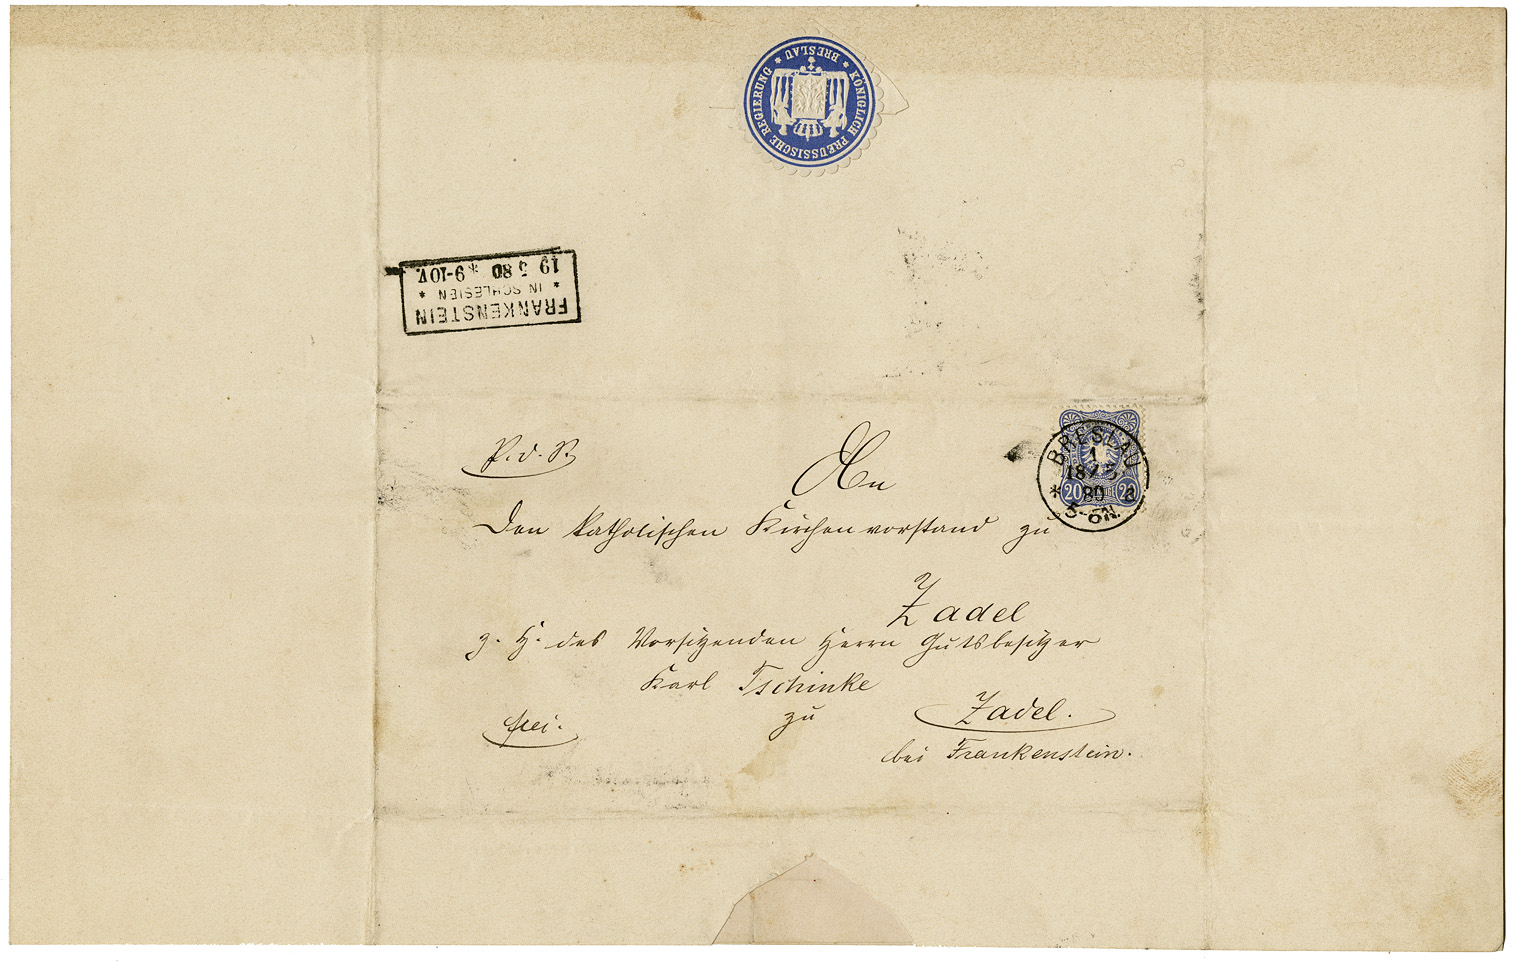 * KÖNIGLICH PREUSSISCHE REGIERUNG * BRESLAU
FRANKENSTEIN
* IN SCHLESIEN *
19 5 80 * 9-10V.
P. d. R.
An
Den katholischen Kirchenvorstand zu
Zadel
z. H. des Vorsitzenden Herrn Gutsbesitzer
Karl Tschinke
frei.
zu
Zadel.
bei Frankenstein.
BRESLAU
1
18/5
80
* a
5-6N.
20
20